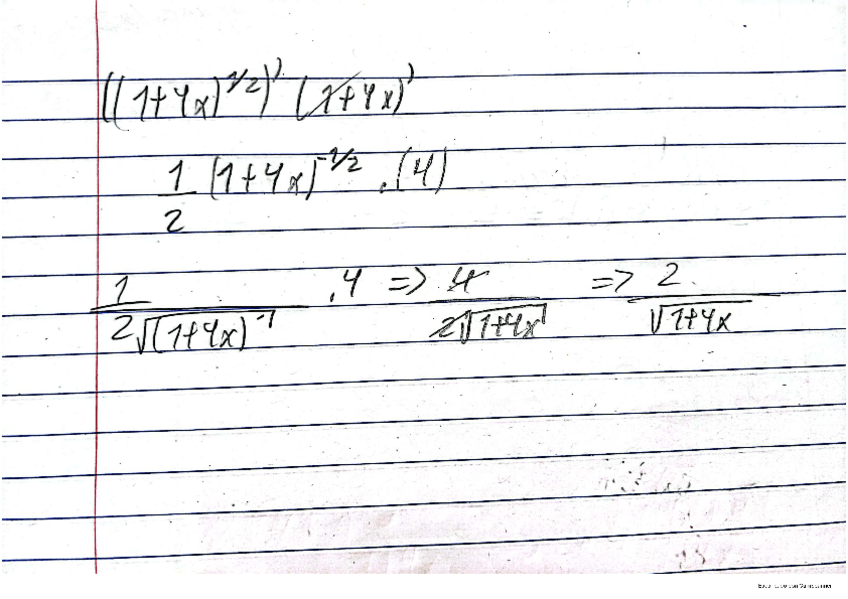 ((1+4x)^1/2)' (1+4x)'
1/2 (1+4x)^-1/2 .(4)
1/2√(1+4x)^-1 .4 => 4/2√1+4x => 2/√1+4x